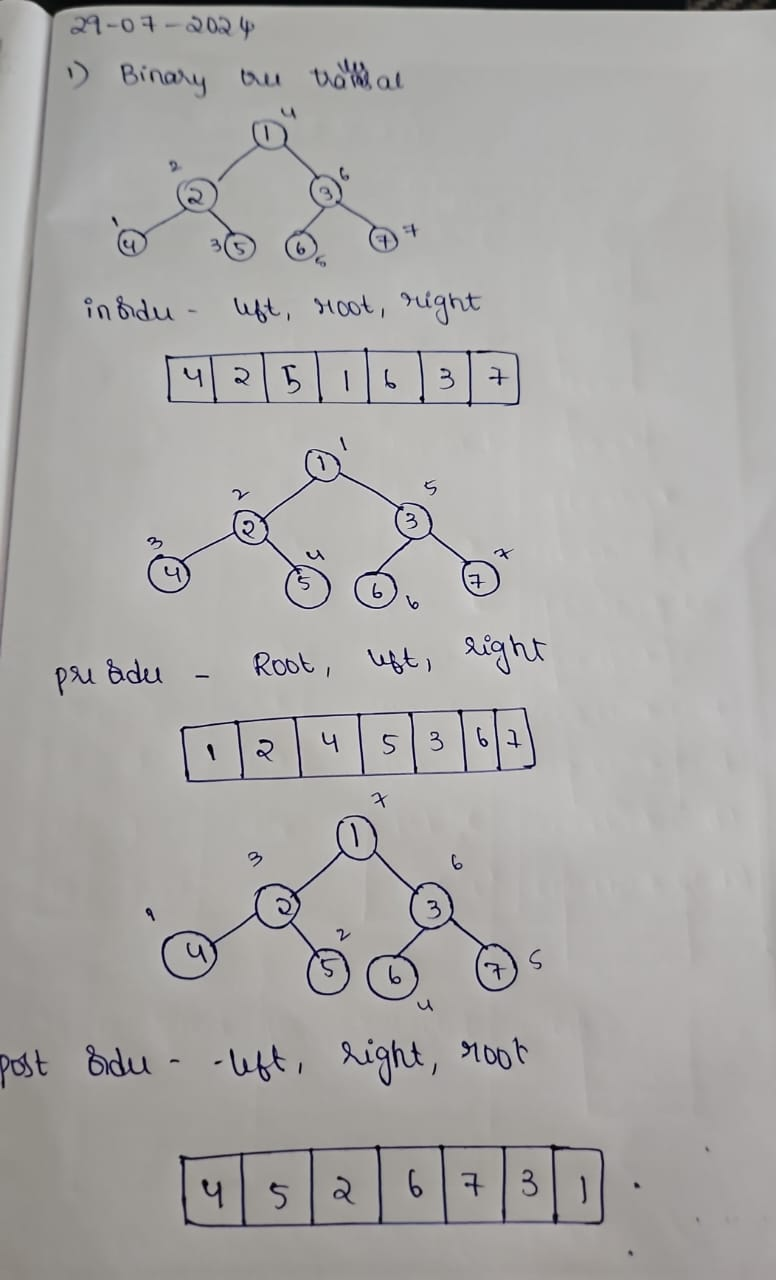 29-07-2024
1) Binary tree traversal
4
1
2 6
2 3
1 4 3 5 6 5 7 7
inorder - left, root, right
4 2 5 1 6 3 7
1
1
2 5
2 3
3 4 7
4 5 6 6 7
pre order - Root, left, right
1 2 4 5 3 6 7
7
1
3 6
2 3
1 2
4 5 6 7 5
4
post order - left, right, root
4 5 2 6 7 3 1